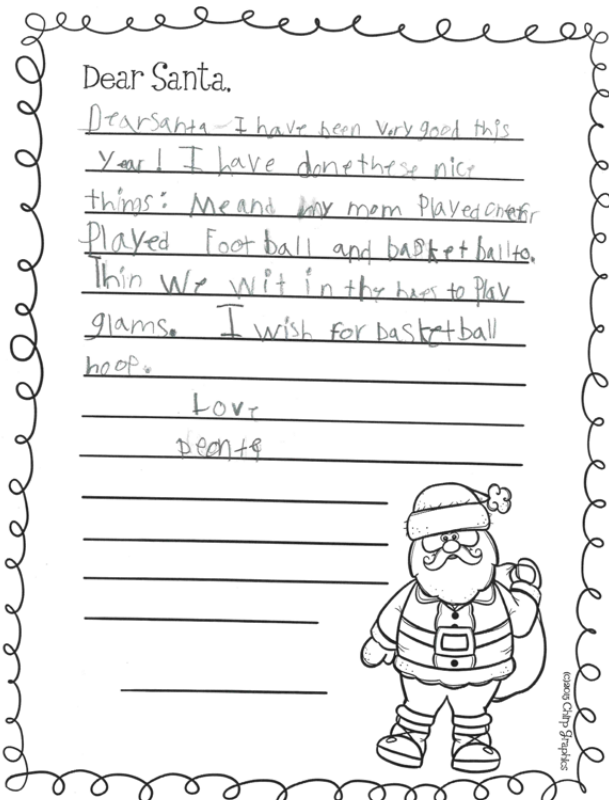 Dear Santa,
Dearsanta-I have been very good this
Year! I have donethese nice
things: Me and my mom Played
Played Foot ball and basketballto.
Thin We wit in the to Play
glams. I wish for basketball
hoop.
Love
Deonte
©2015 Chirp Graphics